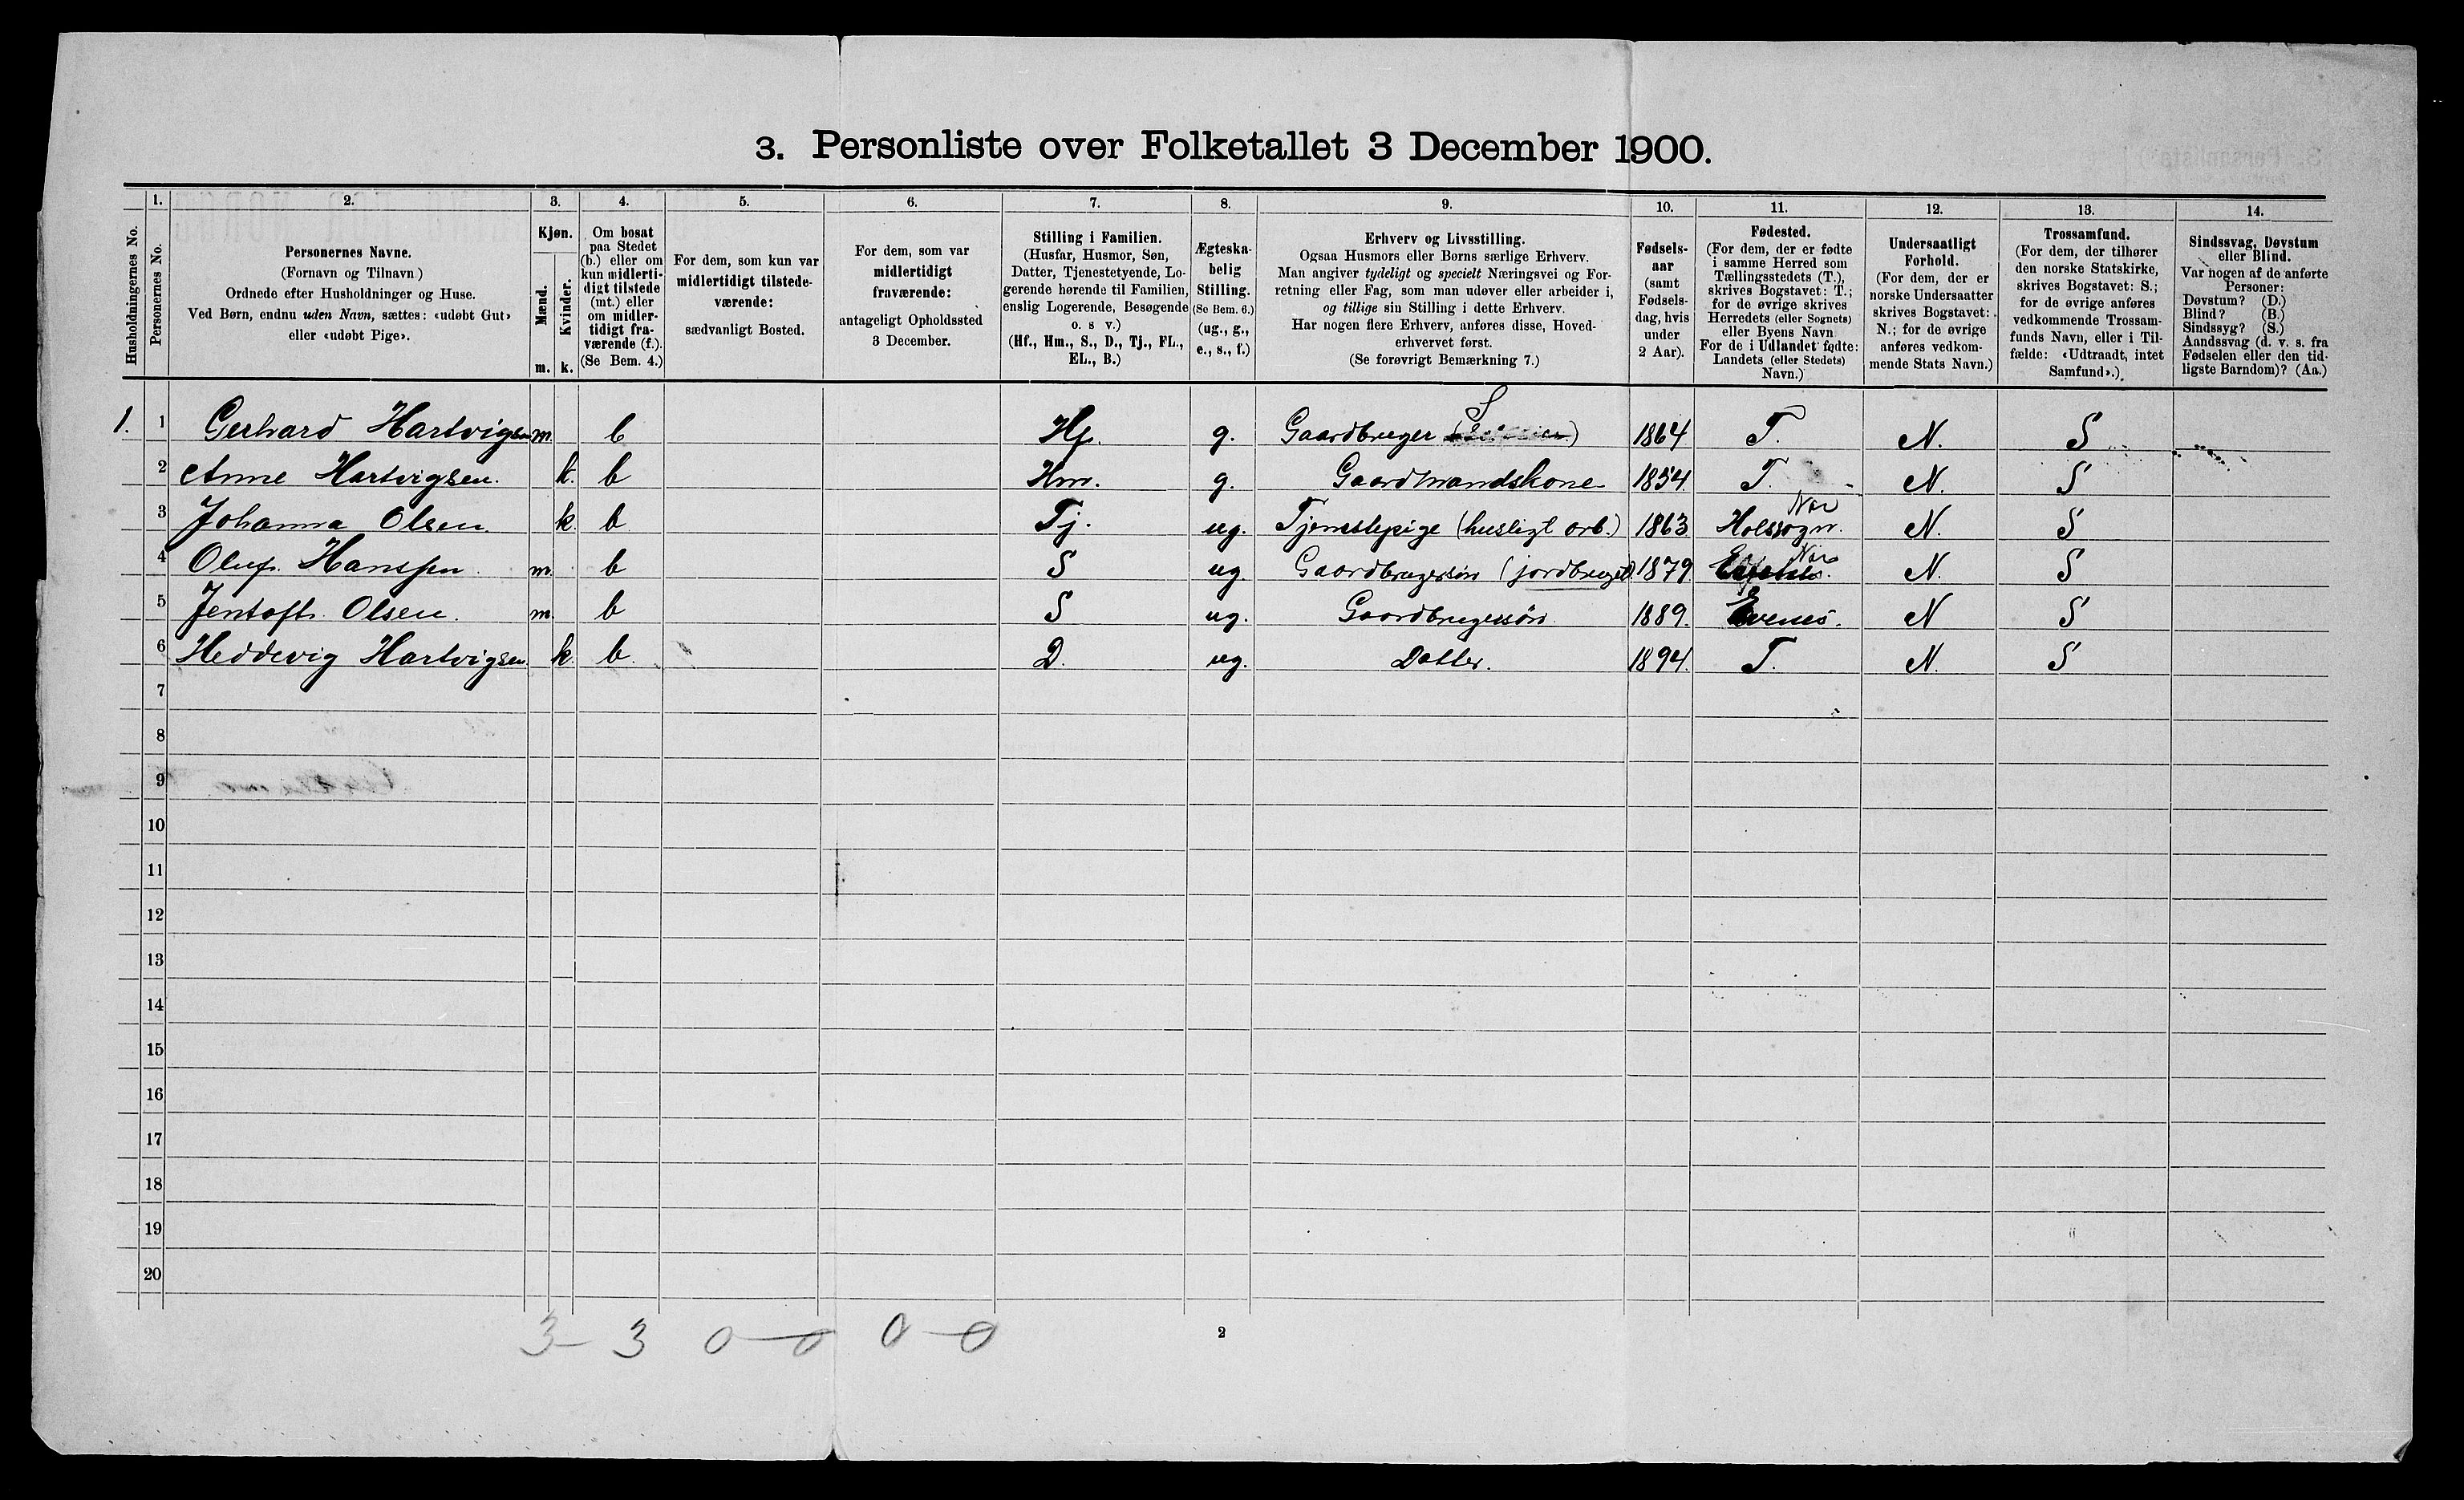 3. Personliste over Folketallet 3 December 1900.
Husholdningernes No.
1.
Personernes No.
2.
Personernes Navne.
(Fornavn og Tilnavn)
Ordnede efter Husholdninger og Huse.
Ved Børn, endnu uden Navn, sættes: «udøbt Gut»
eller «udøbt Pige».
3.
Kjøn.
Mænd.
Kvinder.
m. k.
4.
Om bosat
paa Stedet
(b.) eller om
kun midlerti-
digt tilstede
(mt.) eller
om midler-
tidigt fra-
værende (f.).
(Se Bem. 4.)
5.
For dem, som kun var
midlertidigt tilstede-
værende:
sædvanligt Bosted.
6.
For dem, som var
midlertidigt
fraværende:
antageligt Opholdssted
3 December.
7.
Stilling i Familien.
(Husfar, Husmor, Søn,
Datter, Tjenestetyende, Lo-
gerende hørende til Familien,
enslig Logerende, Besøgende
o. s v.)
(Hf., Hm., S., D., Tj., FL.,
EL., B.)
8.
Ægteska-
belig
Stilling.
(Se Bem. 6.)
(ug., g.,
e., s., f.)
9.
Erhverv og Livsstilling.
Ogsaa Husmors eller Børns særlige Erhverv.
Man angiver tydeligt og specielt Næringsvei og For-
retning eller Fag, som man udøver eller arbeider i,
og tillige sin Stilling i dette Erhverv.
Har nogen flere Erhverv, anføres disse, Hoved-
erhvervet først.
(Se forøvrigt Bemærkning 7.)
10.
Fødsels-
aar
(samt
Fødsels-
dag, hvis
under
2 Aar).
11.
Fødested.
(For dem, der er fødte
i samme Herred som
Tællingsstedets (T.),
skrives Bogstavet: T.;
for de øvrige skrives
Herredets (eller Sognets)
eller Byens Navn
For de i Udlandet fødte:
Landets (eller Stedets)
Navn.)
12.
Undersaatligt
Forhold.
(For dem, der er
norske Undersaatter
skrives Bogstavet:
N.; for de øvrige
anføres vedkom-
mende Stats Navn.)
13.
Trossamfund.
(For dem, der tilhører
den norske Statskirke,
skrives Bogstavet: S.;
for de øvrige anføres
vedkommende Trossam-
funds Navn, eller i Til-
fælde: «Udtraadt, intet
Samfund».)
14.
Sindssvag, Døvstum
eller Blind.
Var nogen af de anførte
Personer:
Døvstum? (D.)
Blind? (B.)
Sindssyg? (S.)
Aandssvag (d. v. s. fra
Fødselen eller den tid-
ligste Barndom)? (Aa.)
1. 1 Gerhard Hartvigsen m. b Hf. g. Gaardbruger S 1864 T. N. S
2 Anne Hartvigsen. k. b Hm. g. Gaardmandskone 1854. T. N. S
3 Johanna Olsen k. b Tj. ug. Tjenestepige (husligt arb.) 1863 Holssogn. Nor N. S
4 Oluf Hanssen m. b S ug. Gaardbrugersøn (jordbruget). 1879 Nor N. S
5 Jentoft Olsen. m. b S ug. Gaardbrugersøn 1889. Evenes. N S
6 Heddevig Hartvigsen k. b. D. ug. Datter. 1894. T. N. S
7
8
9
10
11
12
13
14
15
16
17
18
19
20
3 - 3 0 - 0 0 - 0
2